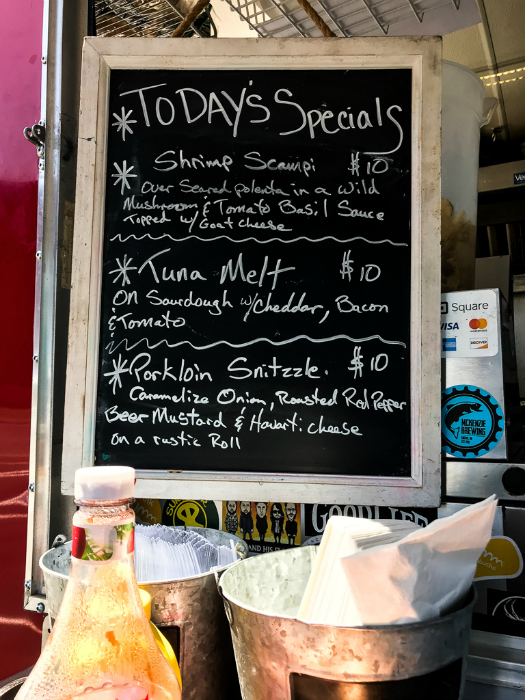 *TODAY'S Specials
* Shrimp Scampi $10
Over Seared polenta in a wild
Mushroom & Tomato Basil Sauce
Topped w/ Goat cheese
* Tuna Melt $10
On Sourdough w/cheddar, Bacon
& Tomato
*Porkloin Snitzzle. $10
Caramelize Onion, Roasted Red Pepper
Beer Mustard & Havarti cheese
on a rustic Roll
Square
VISA
MCKENZIE
BREWING
GOODLIFE
AND HIS